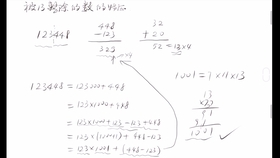 被13整除的数的特征
123448
448
-123
325
32
+20
52=13×4
123448=123000+448
=123×1000+448
=123×1000+123-123+448
=123×(1001)+(448-123)
=123×1001+(448-123)
1001=7×11×13
13
×77
91
91
1001